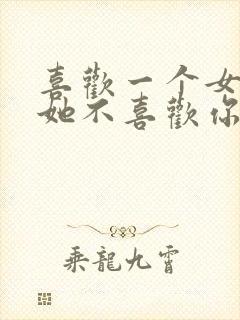 喜歡一个女
她不喜歡你
乘龍九霄